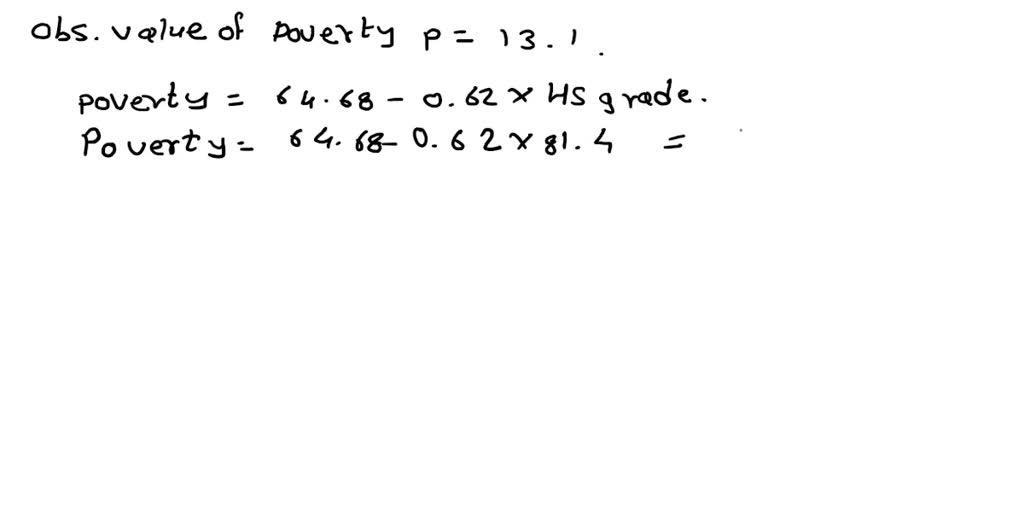 obs. value of poverty P = 13.1.
poverty = 64.68 - 0.62 x HS grade.
Poverty = 64.68 - 0.62 x 81.4 =